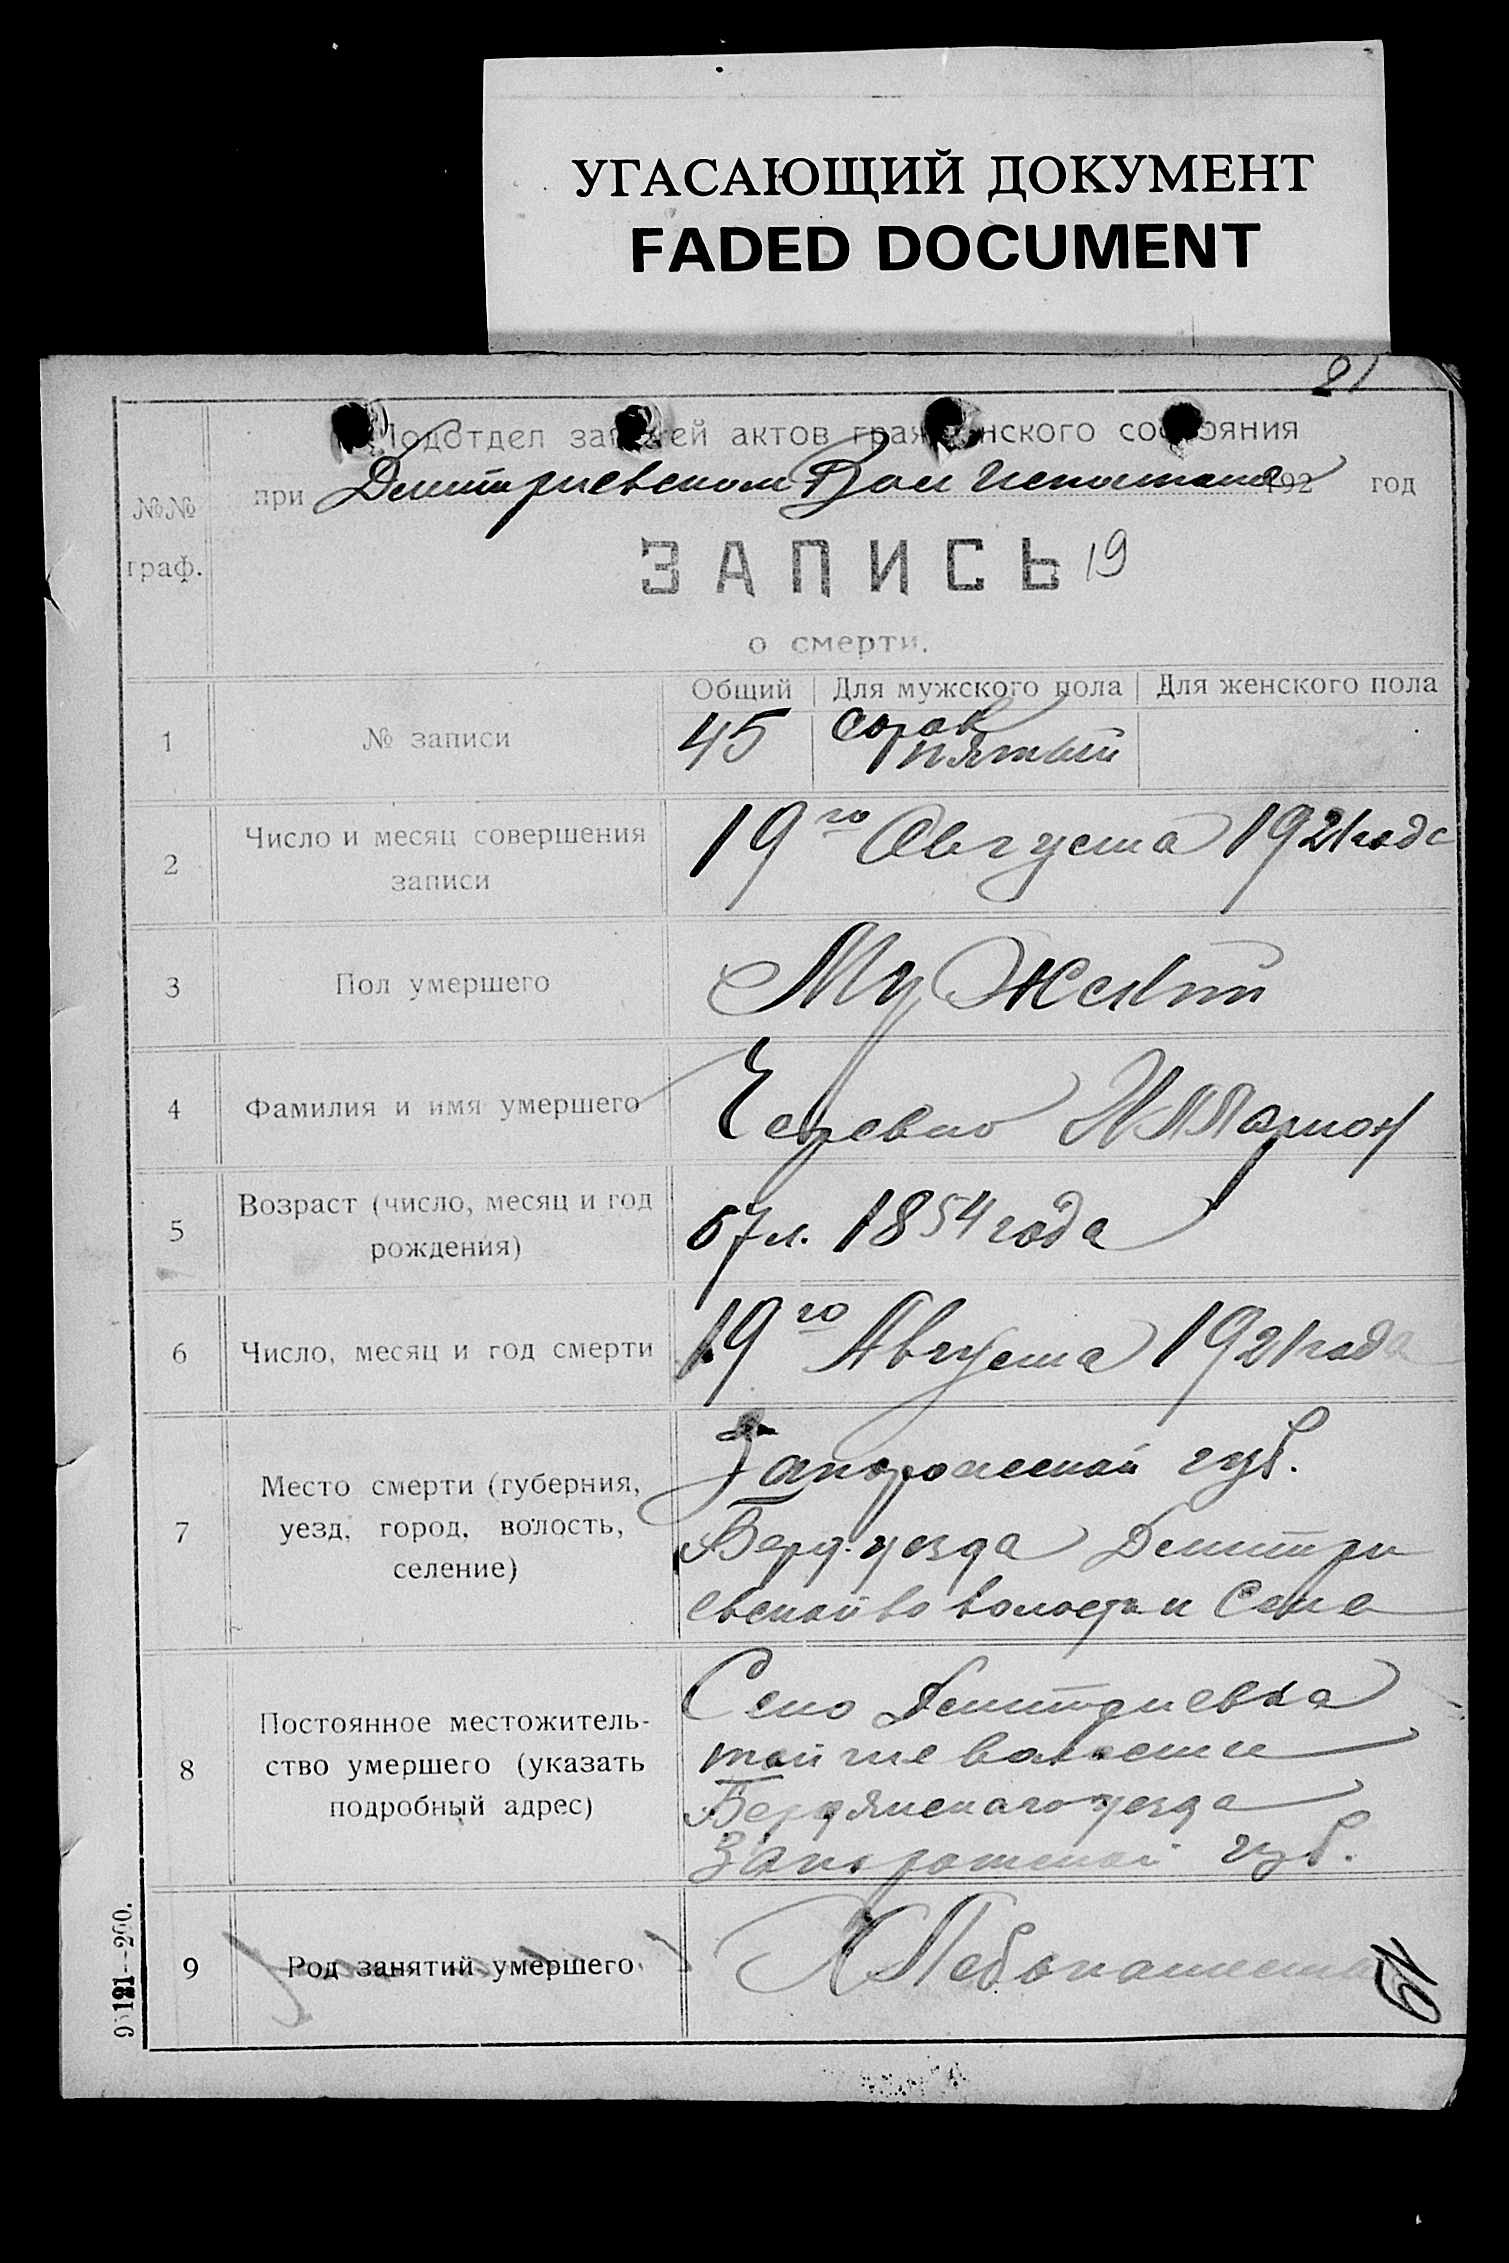 УГАСАЮЩИЙ ДОКУМЕНТ
FADED DOCUMENT
21
Подотдел записей актов гражданского состояния
при Дмитриевском Вол Исполкоме 192 год
№№
граф.
ЗАПИСЬ 19
о смерти.
Общий Для мужского пола Для женского пола
1 № записи 45 сорок
пятый
2 Число и месяц совершения
записи
19го Августа 1921 года
3 Пол умершего Мужской
4 Фамилия и имя умершего Илларион
5 Возраст (число, месяц и год
рождения)
67 л. 1854 года
6 Число, месяц и год смерти 19го Августа 1921 года
7 Место смерти (губерния,
уезд, город, волость,
селение)
Запорожской губ.
Берд. уезда Дмитри
евской волости
8 Постоянное местожитель-
ство умершего (указать
подробный адрес)
Село Дмитриевка
той же волости
Бердянского уезда
Запорожской губ.
9 Род занятий умершего Хлебопашество
19